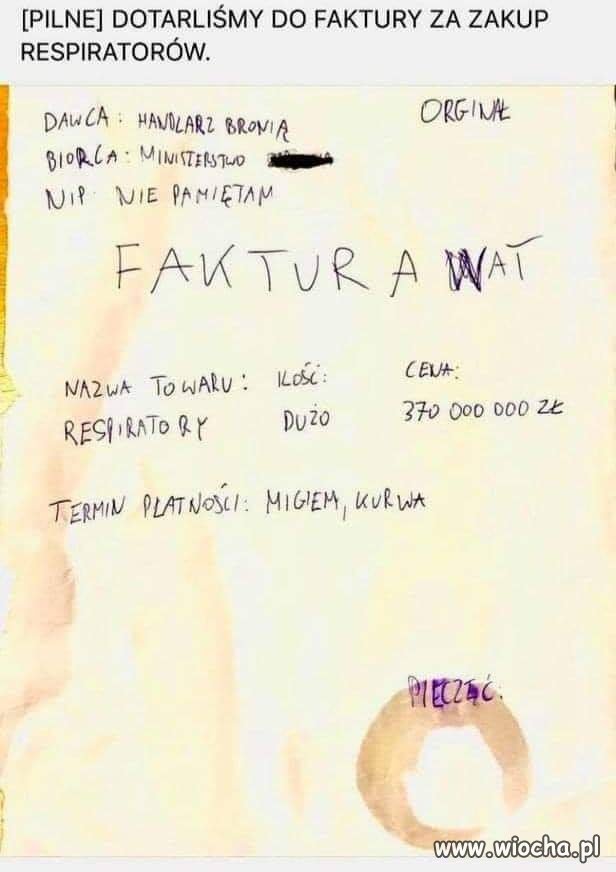 [PILNE] DOTARLIŚMY DO FAKTURY ZA ZAKUP
RESPIRATORÓW.
ORGINAŁ
DAWCA: HANDLARZ BRONIĄ
BIORCA: MINISTERSTWO
NIP: NIE PAMIĘTAM
FAKTURA WAT
NAZWA TOWARU: ILOŚĆ: CENA:
RESPIRATORY DUŻO 370 000 000 ZŁ
TERMIN PŁATNOŚCI: MIGIEM, KURWA
PIECZĘĆ:
www.wiocha.pl